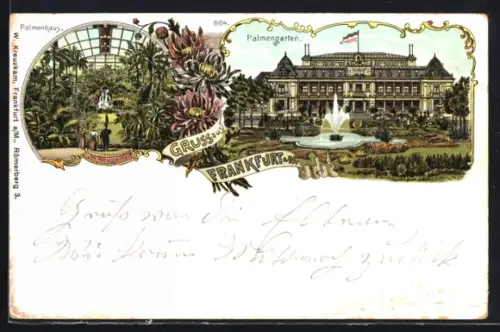 Palmenhaus.
664.
Palmengarten.
GRUSS aus
FRANKFURT a/M.
W. Kreuzkam, Frankfurt a/M. Römerberg 3.
Gruß von die Eltern
Mittwoch zurück